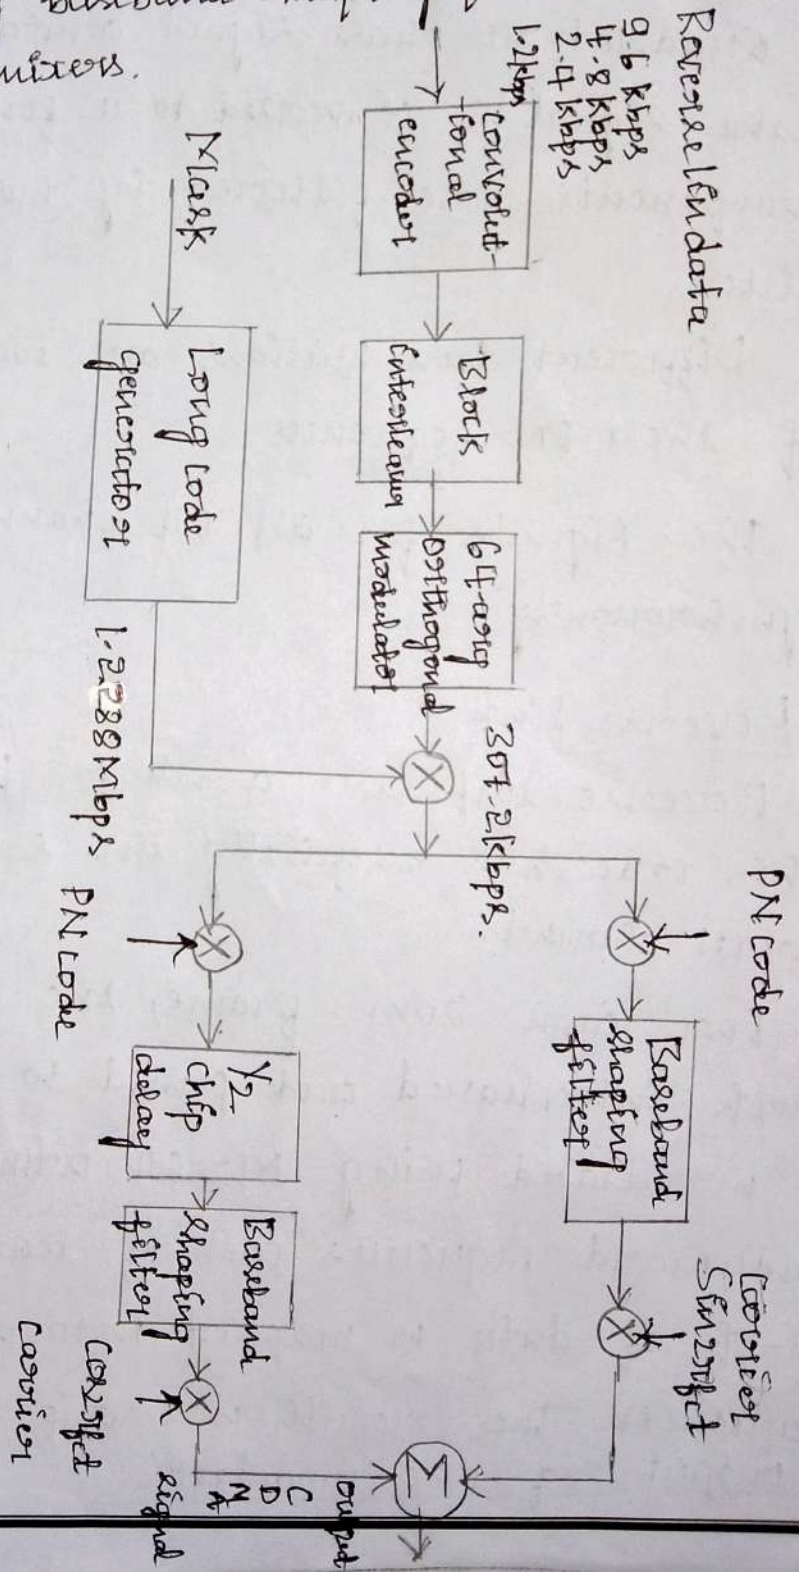 mixers.
Reverse lin data
9.6 kbps
4.8 kbps
2.4 kbps
1.2kbps
Convolut-
ional
encoder
Block
interleaver
64-ary
orthogonal
modulator
307.2kbps.
Mask
Long code
generator
1.2288Mbps
PN code
Baseband
shaping
filter
Carrier
Sin2πfct
PN code
1/2
chip
delay
Baseband
shaping
filter
Cos2πfct
Carrier
Σ
output
CDMA
signal